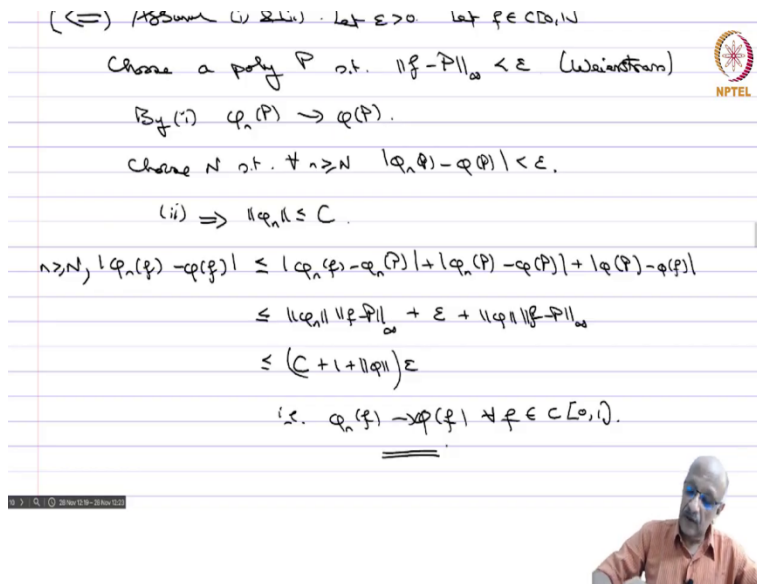 (<=) Assume (i) & (ii). Let ε>0. Let f ∈ C[0,1]
Choose a poly P s.t. ||f-P||∞ < ε (Weierstrass)
NPTEL
By (i) φₙ(P) → φ(P).
Choose N s.t. ∀ n≥N |φₙ(P) - φ(P)| < ε.
(ii) ⇒ ||φₙ|| ≤ C.
n≥N, |φₙ(f) - φ(f)| ≤ |φₙ(f) - φₙ(P)| + |φₙ(P) - φ(P)| + |φ(P) - φ(f)|
≤ ||φₙ|| ||f-P||∞ + ε + ||φ|| ||f-P||∞
≤ (C + 1 + ||φ||) ε
i.e. φₙ(f) → φ(f) ∀ f ∈ C[0,1].